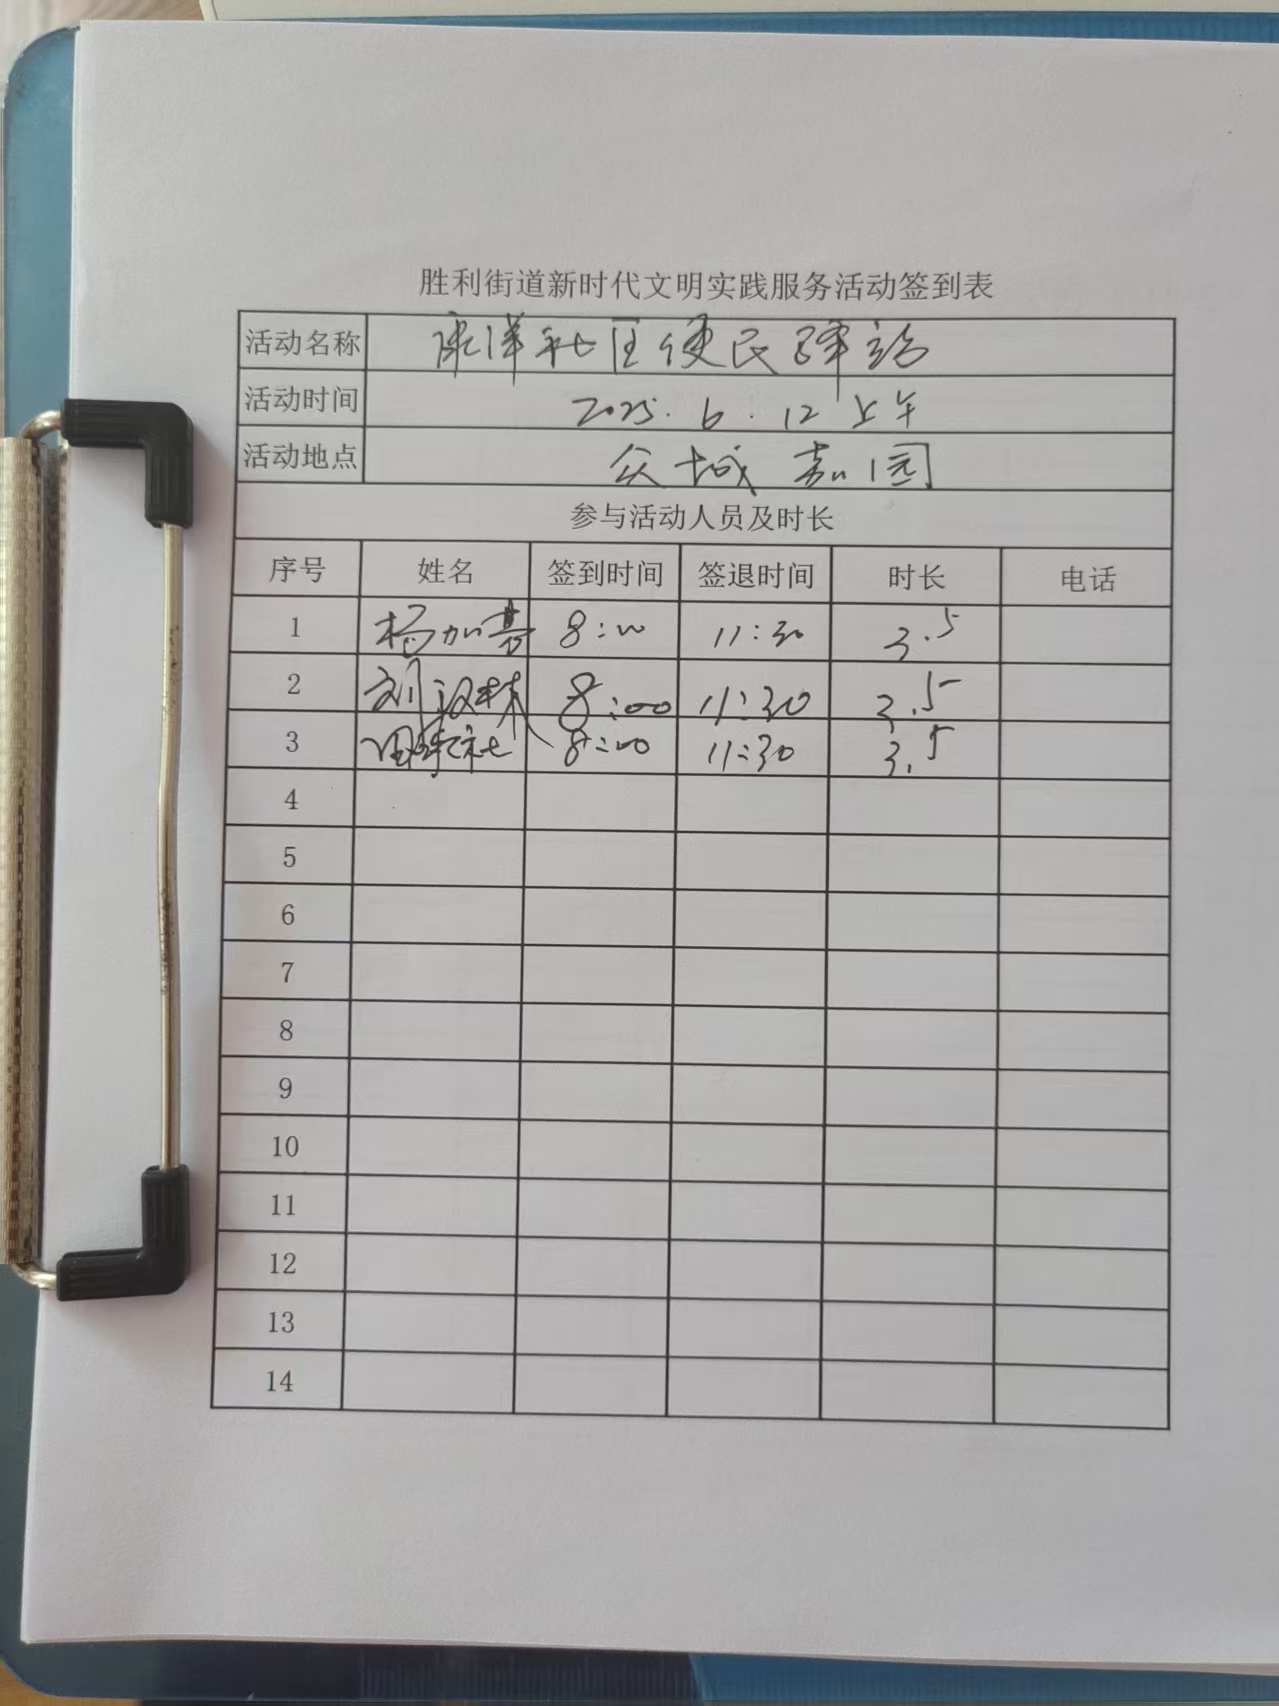 胜利街道新时代文明实践服务活动签到表
活动名称 康洋社区便民驿站
活动时间 2025.6.12上午
活动地点 众城嘉园
参与活动人员及时长
序号 姓名 签到时间 签退时间 时长 电话
1 杨加 8:00 11:30 3.5
2 刘汉林 8:00 11:30 3.5
3 8:00 11:30 3.5
4
5
6
7
8
9
10
11
12
13
14